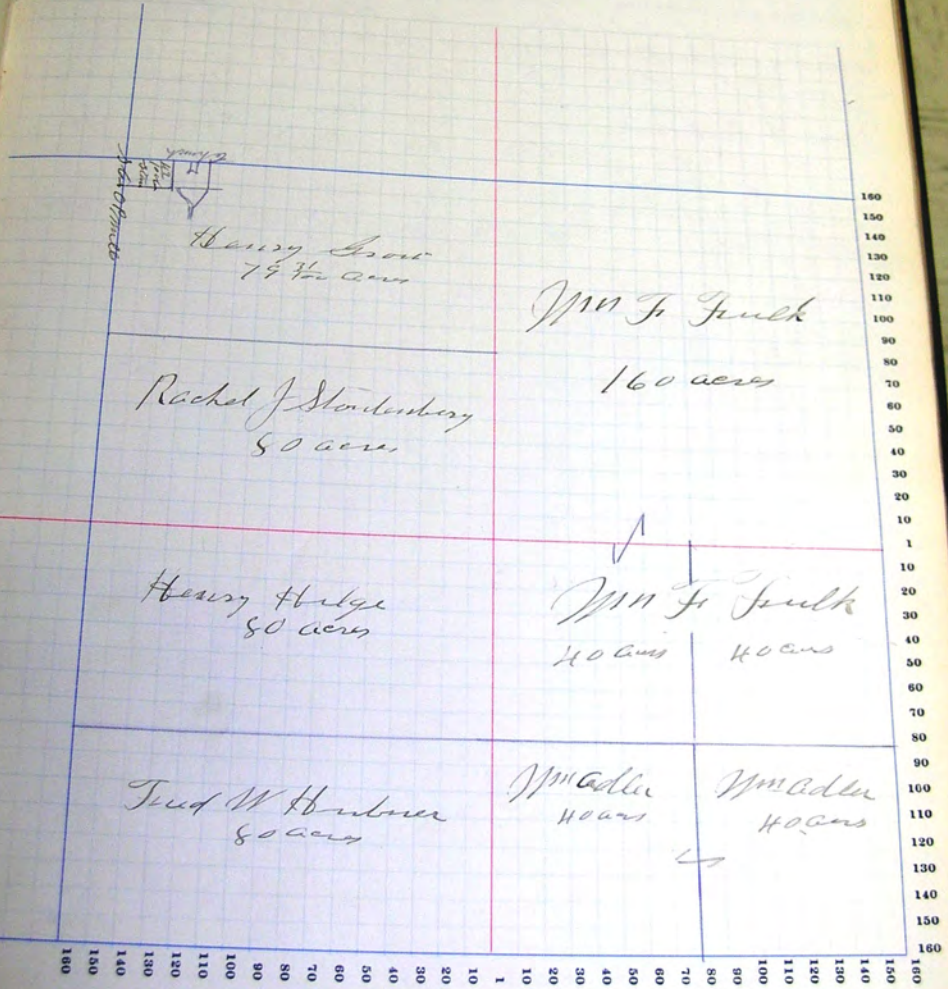 Henry Grout
79 71/100 acres
Wm F Faulk
160 acres
Rachel J Stoutenburg
80 acres
Henry Helge
80 acres
Wm F Faulk
40 acres 40 acres
Fred W Hubner
80 acres
Wm Adler
40 acres
Wm Adler
40 acres
160
150
140
130
120
110
100
90
80
70
60
50
40
30
20
10
1
10
20
30
40
50
60
70
80
90
100
110
120
130
140
150
160
160 150 140 130 120 110 100 90 80 70 60 50 40 30 20 10 1 10 20 30 40 50 60 70 80 90 100 110 120 130 140 150 160